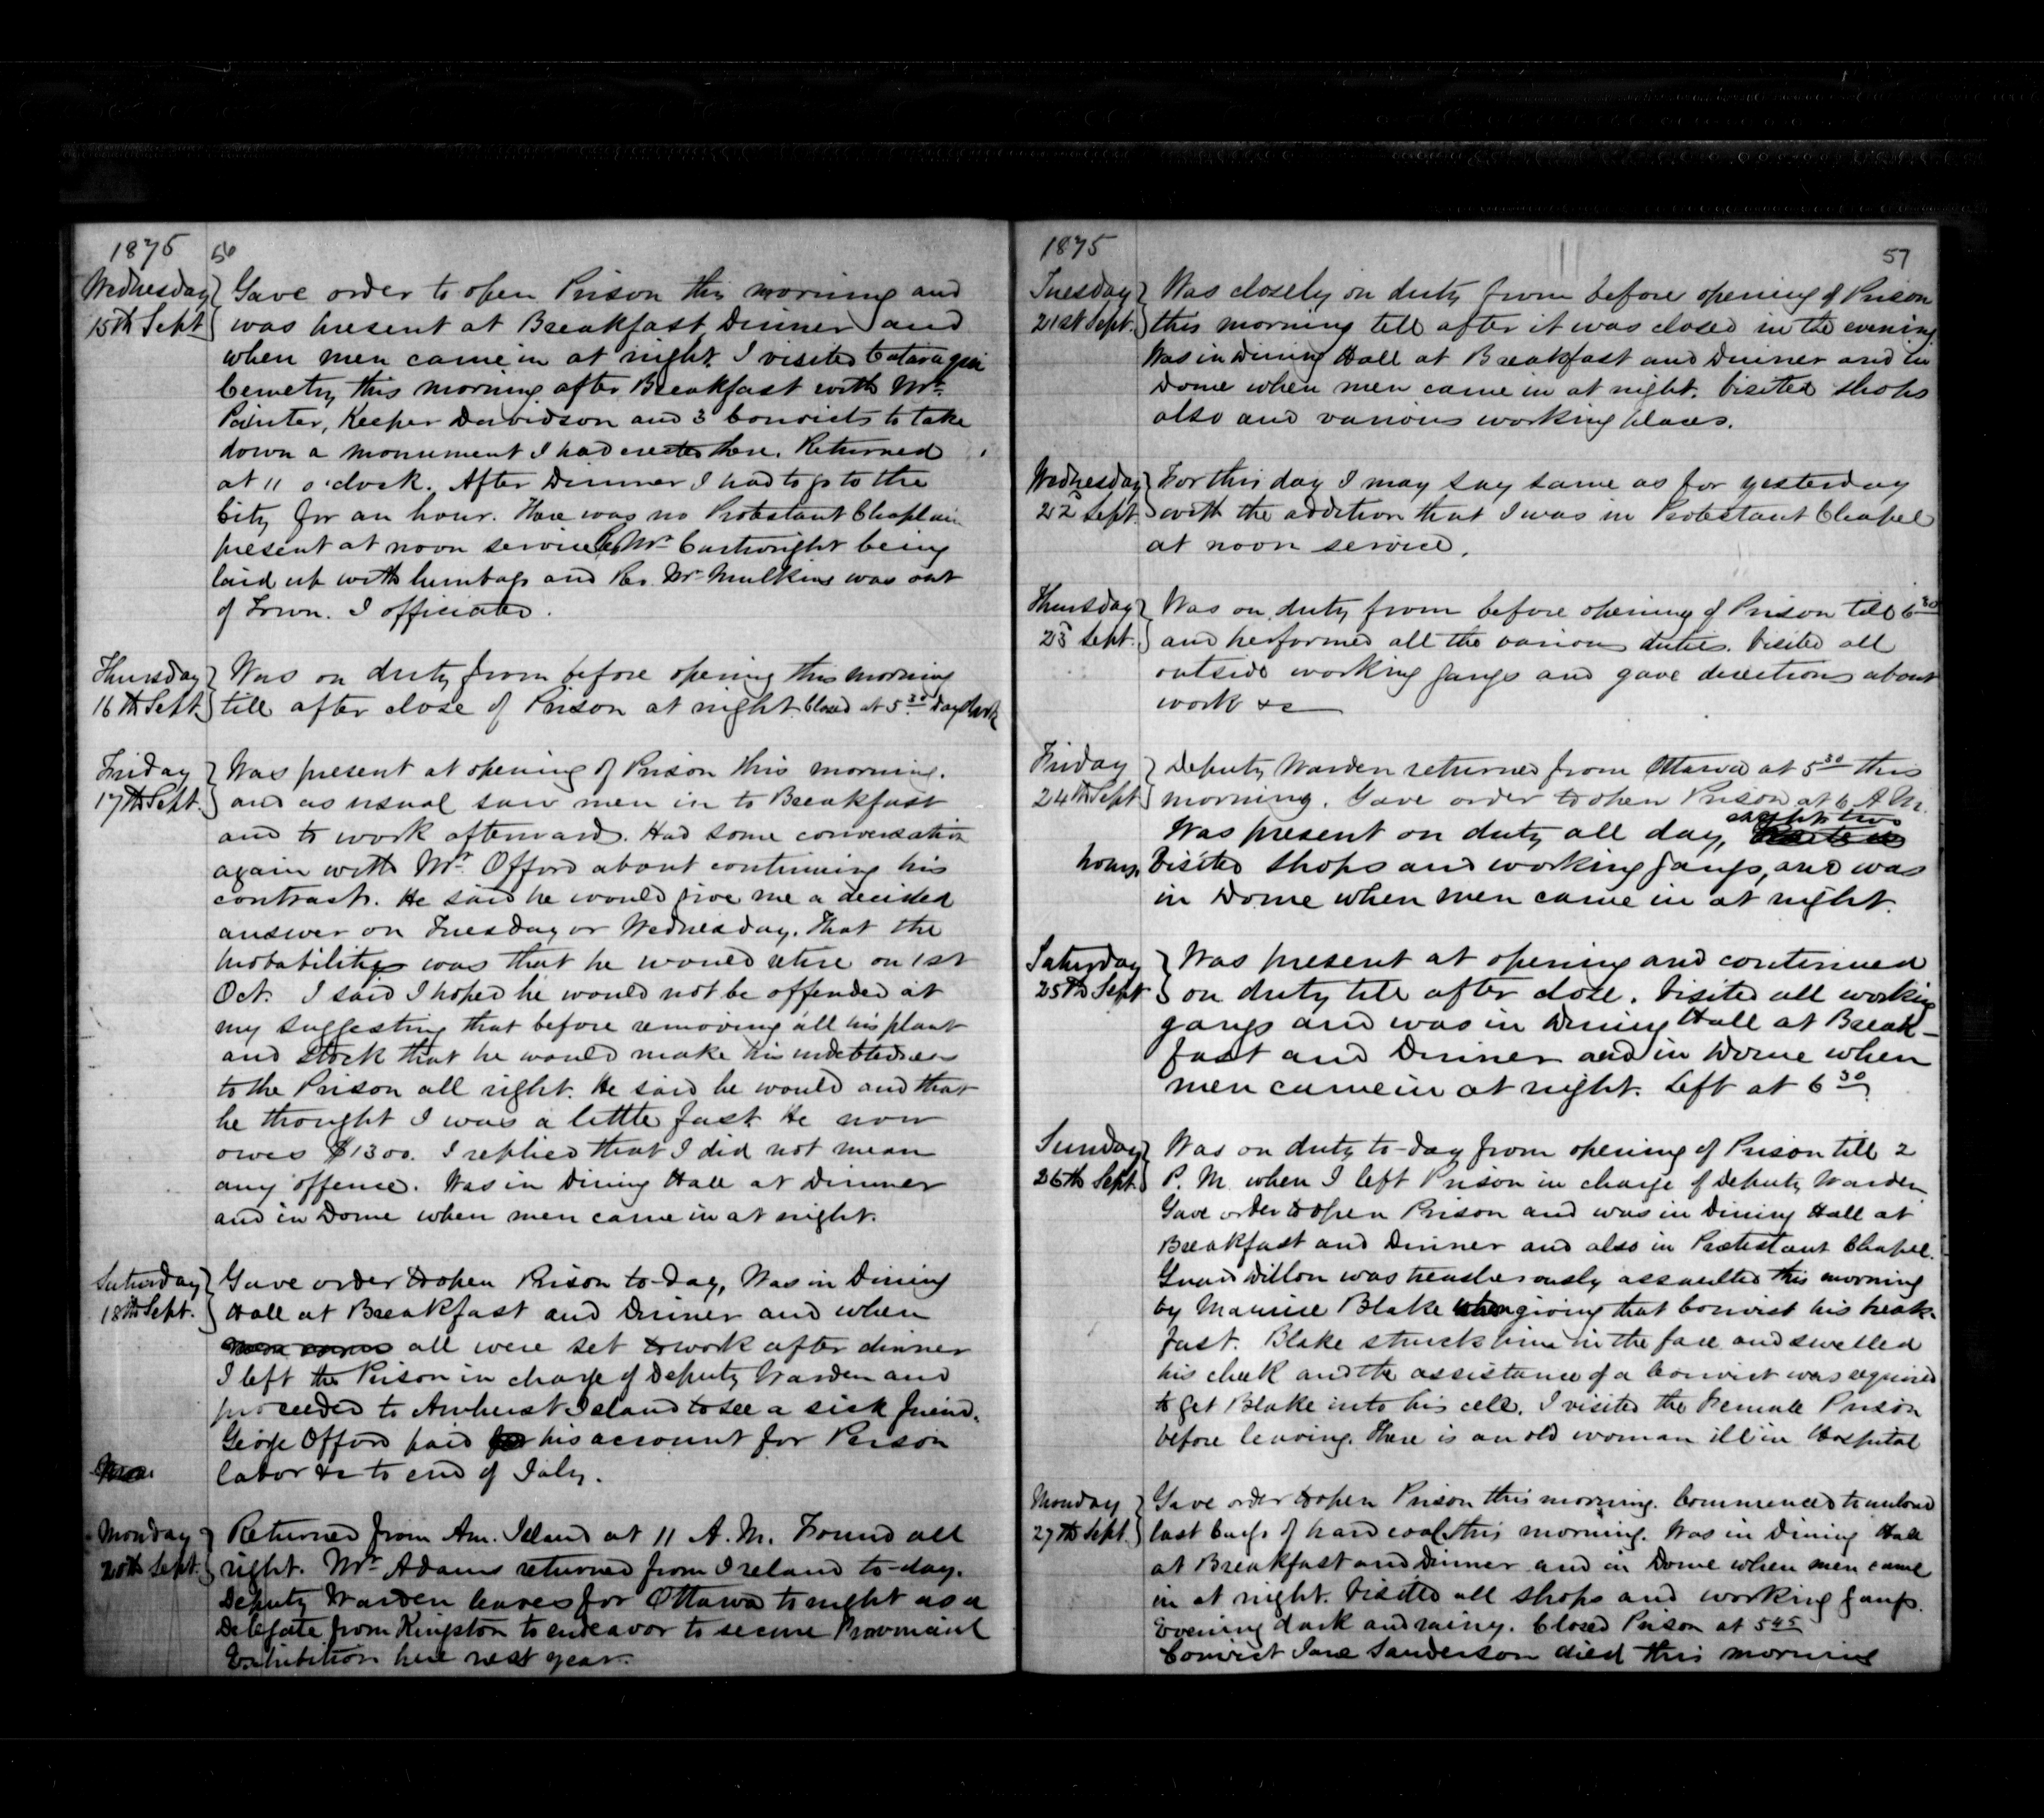 1875 56
Wednesday 15th Sept. Gave order to open Prison this morning and
was present at Breakfast, Dinner and
when men came in at night. I visited Cataraqui
Cemetry this morning after Breakfast with Mr.
Painter, Keeper Davidson and 3 Convicts to take
down a monument I had erected there. Returned
at 11 o'clock. After Dinner I had to go to the
City for an hour. There was no Protestant Chaplain
present at noon service Mr. Cartwright being
laid up with lumbago and Rev. Mr. Mulkins was out
of Town. I officiated.
Thursday 16th Sept. Was on duty from before opening this morning
till after close of Prison at night. Closed at 5 30 Day dark
Friday 17th Sept. Was present at opening of Prison this morning.
and as usual saw men in to Breakfast
and to work afterwards. Had some conversation
again with Mr. Offord about continuing his
contract. He said he would give me a decided
answer on Tuesday or Wednesday. That the
probability was that he would retire on 1st
Oct. I said I hoped he would not be offended at
my suggesting that before removing all his plant
and stock that he would make his indebtedness
to the Prison all right. He said he would and that
he thought I was a little fast. He now
owes $1300. I replied that I did not mean
any offence. Was in Dining Hall at Dinner
and in Dome when men came in at night.
Saturday 18th Sept. Gave order to open Prison to-day, Was in Dining
Hall at Breakfast and Dinner and when
men came all were set to work after dinner
I left the Prison in charge of Deputy Warden and
proceeded to Amherst Island to see a sick friend.
George Offord paid his account for Prison
labor &c to end of July.
Monday 20th Sept. Returned from Am. Island at 11 A.M. Found all
right. Mr. Adams returned from Ireland to-day.
Deputy Warden leaves for Ottawa to night as a
Delegate from Kingston to endeavor to secure Provincial
Exhibition here next year.
1875 57
Tuesday 21st Sept. Was closely on duty from before opening of Prison
this morning till after it was closed in the evening.
Was in Dining Hall at Breakfast and Dinner and in
Dome when men came in at night. Visited shops
also and various working places.
Wednesday 22d Sept. For this day I may say same as for yesterday
with the addition that I was in Protestant Chapel
at noon service.
Thursday 23d Sept. Was on duty from before opening of Prison till 6 30
and performed all the various duties. Visited all
outside working gangs and gave directions about
work &c
Friday 24th Sept. Deputy Warden returned from Ottawa at 5 30 this
morning. Gave order to open Prison at 6 A.M.
Was present on duty all day, except two
hours. Visited shops and working gangs, and was
in Dome when men came in at night.
Saturday 25th Sept. Was present at opening and continued
on duty till after close. Visited all working
gangs and was in Dining Hall at Break-
fast and Dinner and in Dome when
men came in at night. Left at 6 30
Sunday 26th Sept. Was on duty to-day from opening of Prison till 2
P.M. when I left Prison in charge of Deputy Warden
Gave order to open Prison and was in Dining Hall at
Breakfast and Dinner and also in Protestant Chapel.
Guard Dillon was treacherously assaulted this morning
by Maurice Blake when giving that Convict his break-
fast. Blake struck him in the face and swelled
his cheek and the assistance of a Convict was required
to get Blake into his cell. I visited the Female Prison
before leaving. There is an old woman ill in Hospital
Monday 27th Sept. Gave order to open Prison this morning. Commenced to unload
last barge of hard coal this morning. Was in Dining Hall
at Breakfast and Dinner and in Dome when men came
in at night. Visited all shops and working gangs.
Evening dark and rainy. Closed Prison at 5 45
Convict Jane Sanderson died this morning